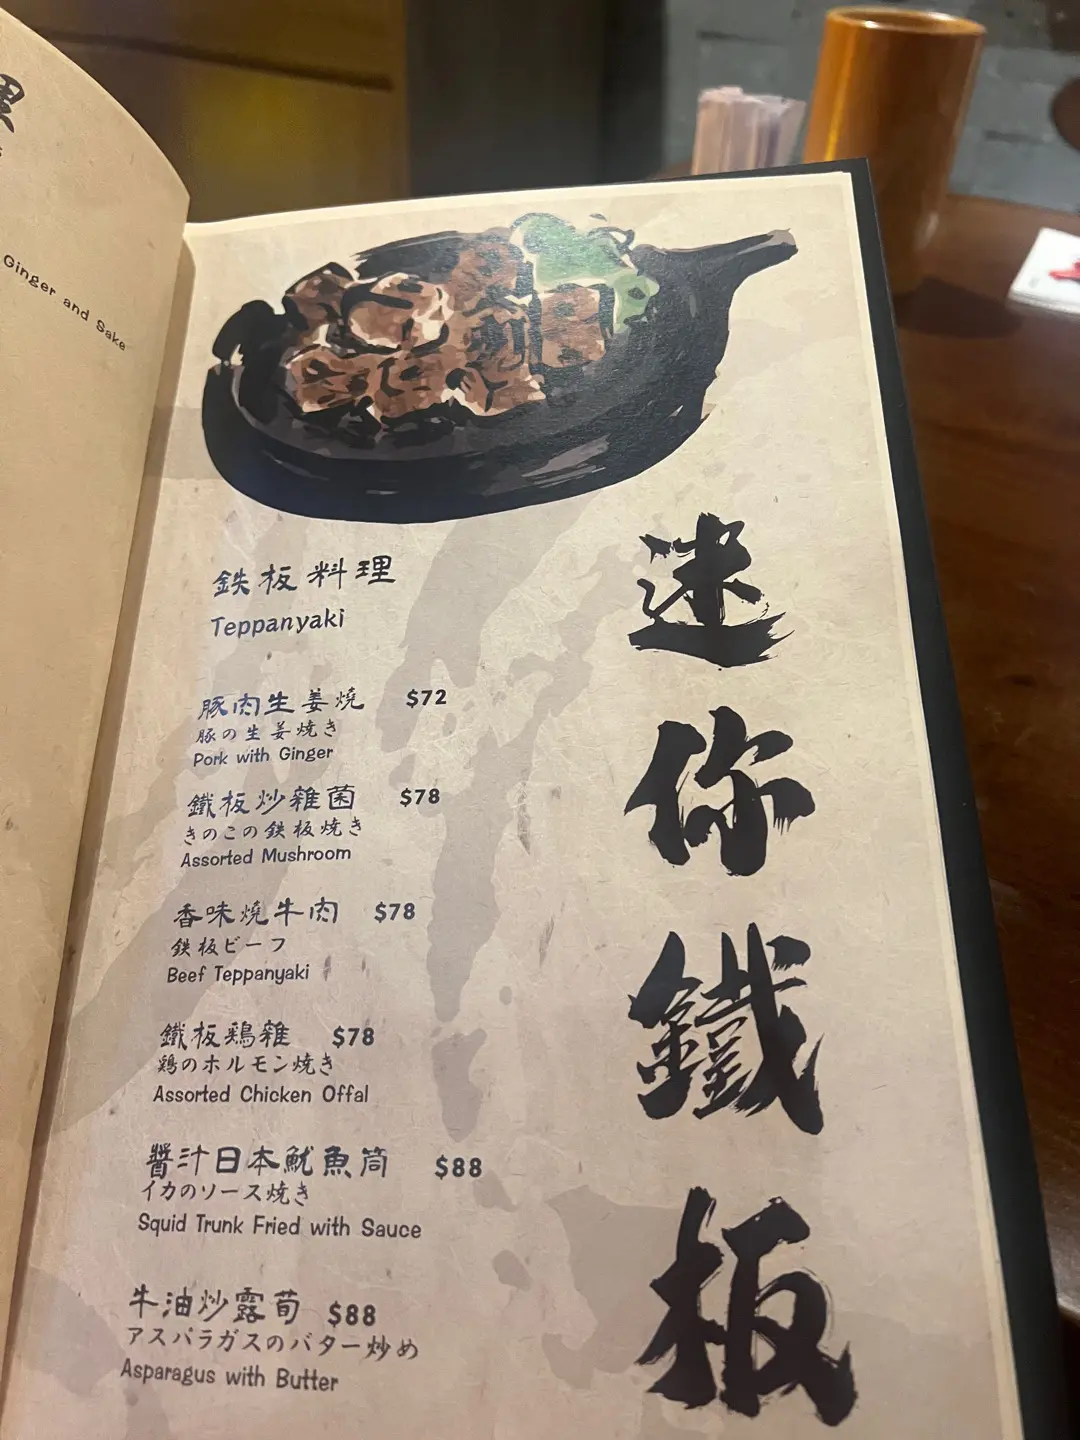 Ginger and Sake
鉄板料理
Teppanyaki
豚肉生姜燒 $72
豚の生姜焼き
Pork with Ginger
鐵板炒雜菌 $78
きのこの鉄板焼き
Assorted Mushroom
香味燒牛肉 $78
鉄板ビーフ
Beef Teppanyaki
鐵板鶏雜 $78
鶏のホルモン焼き
Assorted Chicken Offal
醬汁日本魷魚筒 $88
イカのソース焼き
Squid Trunk Fried with Sauce
牛油炒露荀 $88
アスパラガスのバター炒め
Asparagus with Butter
迷你鐵板